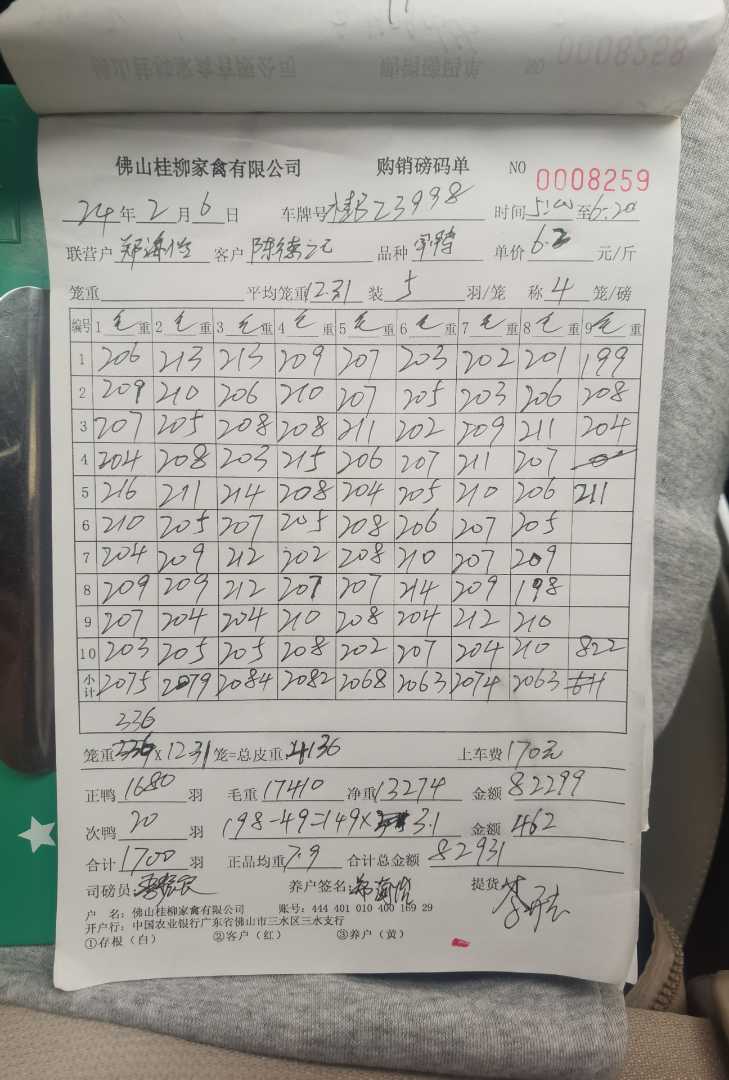 佛山桂柳家禽有限公司 购销磅码单 NO 0008259
24年2月6日 车牌号桂 Z3998 时间5:00至6:20
联营户 郑海 客户 陈德记 品种 单价6.2元/斤
笼重 平均笼重12.31 装5羽/笼 称4笼/磅
编号 1毛重 2毛重 3毛重 4毛重 5毛重 6毛重 7毛重 8毛重 9毛重
1 206 213 213 209 207 203 202 201 199
2 209 210 206 210 207 205 203 206 208
3 207 205 208 208 211 202 209 211 204
4 204 208 203 215 206 207 211 207
5 216 211 214 208 204 205 210 206 211
6 210 205 207 205 208 206 207 205
7 204 209 212 202 208 210 207 209
8 209 209 212 207 207 214 209 198
9 207 204 204 210 208 204 212 210
10 203 205 205 208 202 207 204 210 822
小计 2075 2079 2084 2082 2068 2063 2074 2063
336
笼重336×12.31笼=总皮重4136 上车费170元
正鸭1680羽 毛重17410 净重13274 金额82299
次鸭20羽 198-49=149× 3.1 金额462
合计1700羽 正品均重7.9 合计总金额82931
司磅员 养户签名郑海 提货人
户 名：佛山桂柳家禽有限公司 账号：444 401 010 400 169 29
开户行：中国农业银行广东省佛山市三水区三水支行
①存根（白） ②客户（红） ③养户（黄）